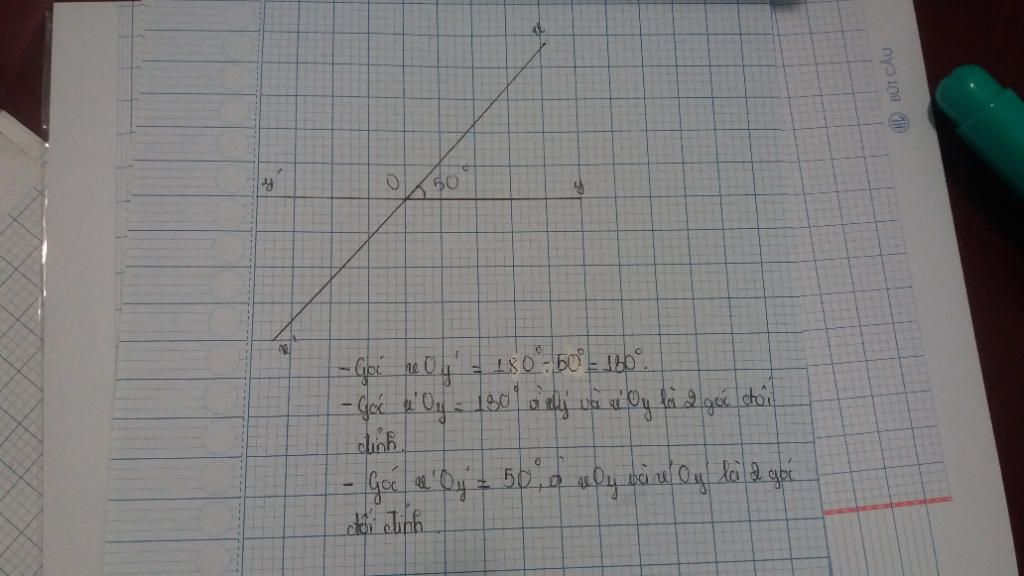 x
y'
O
50°
y
x'
- Góc xOy' = 180° - 50° = 130°.
- Góc x'Oy = 130° vì xOy' và x'Oy là 2 góc đối
đỉnh.
- Góc x'Oy' = 50°, vì xOy và x'Oy' là 2 góc
đối đỉnh.
BÚT CẦU